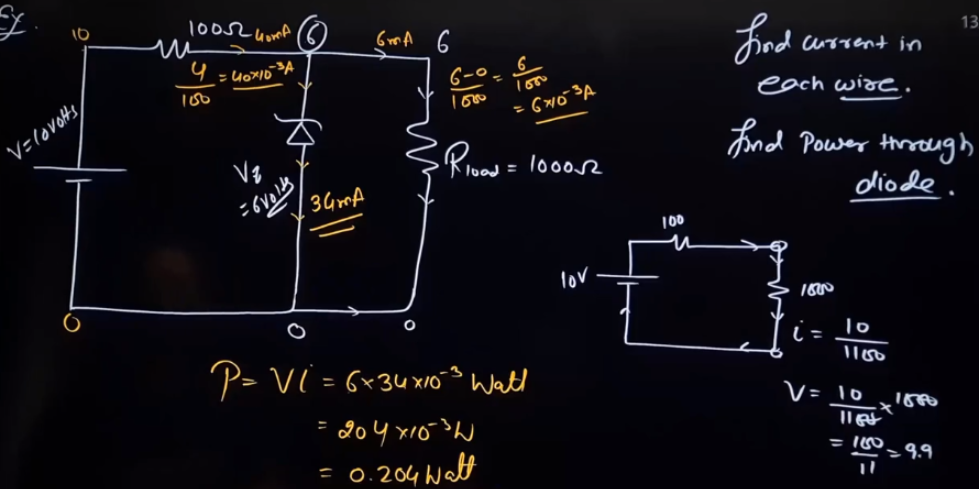 Ex.
13
10
100Ω
40mA
6
6mA
6
4/100 = 40×10⁻³A
6-0/1000 = 6/1000
= 6×10⁻³A
V=10volts
Vz
=6Volts
34mA
Rload = 1000Ω
0
0
0
find current in
each wire.
find Power through
diode.
100
10V
1000
i = 10/1100
V = 10/1100 ×1000
= 100/11 = 9.9
P = Vi = 6×34×10⁻³ Watt
= 204×10⁻³W
= 0.204 Watt